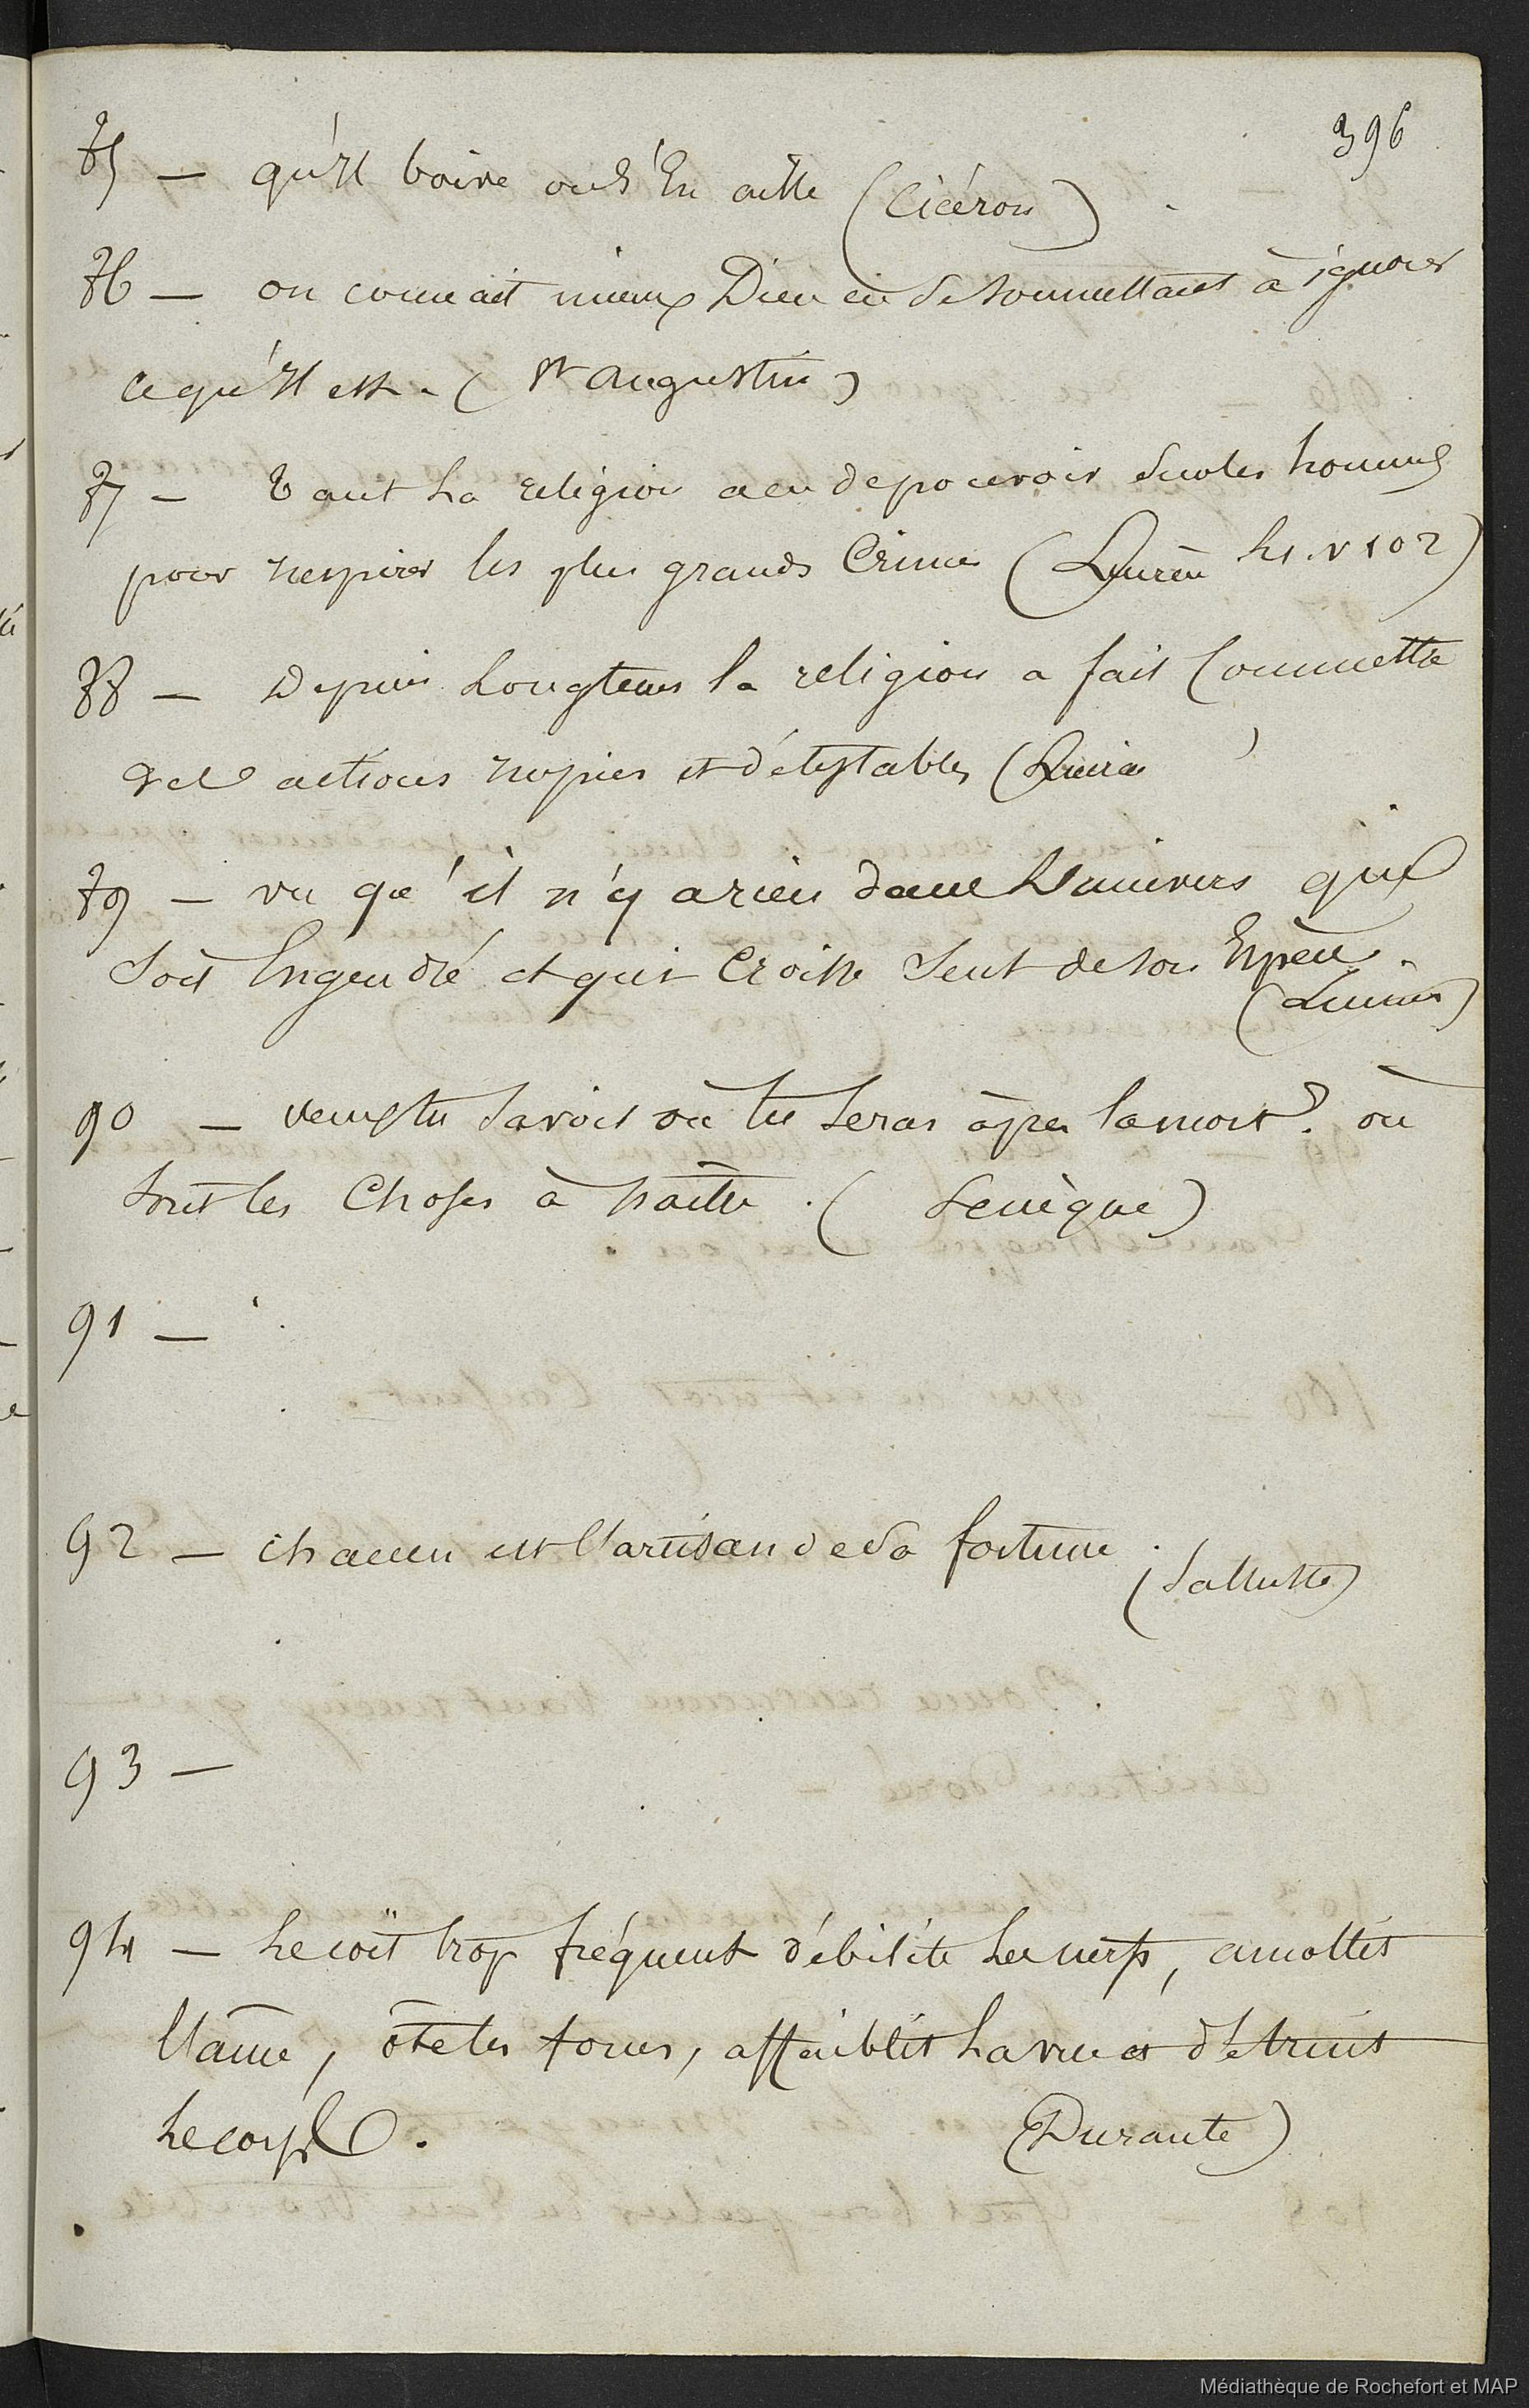 396
85 — qu'Il boive ou s'En aille (Cicéron)
86 — on connait mieux Dieu en se soumettant à ignorer
ce qu'Il est. (St augustin)
87 — Tant la religion a eu de pouvoir sur les hommes
pour inspirer les plus grands Crimes (Lucrèce L1. v 102)
88 — Depuis Longtems la religion a fait Commettre
des actions impies et détestables (Lucrèce)
89 — vu qu'il n'y a rien dans L'univers qui
soit Engendré et qui Croisse seul de son Espèce.
(Lucrèce)
90 — veux tu savoir où tu seras après la mort? où
sont les Choses à naître. (Senèque)
91 —
92 — chacun est l'artisan de sa fortune.
(Salluste)
93 —
94 — Le coït trop fréquent débilite Les nerfs, amollit
l'âme, ôte les forces, affaiblit La vue et détruit
Le corps.
(Durante)
Médiathèque de Rochefort et MAP